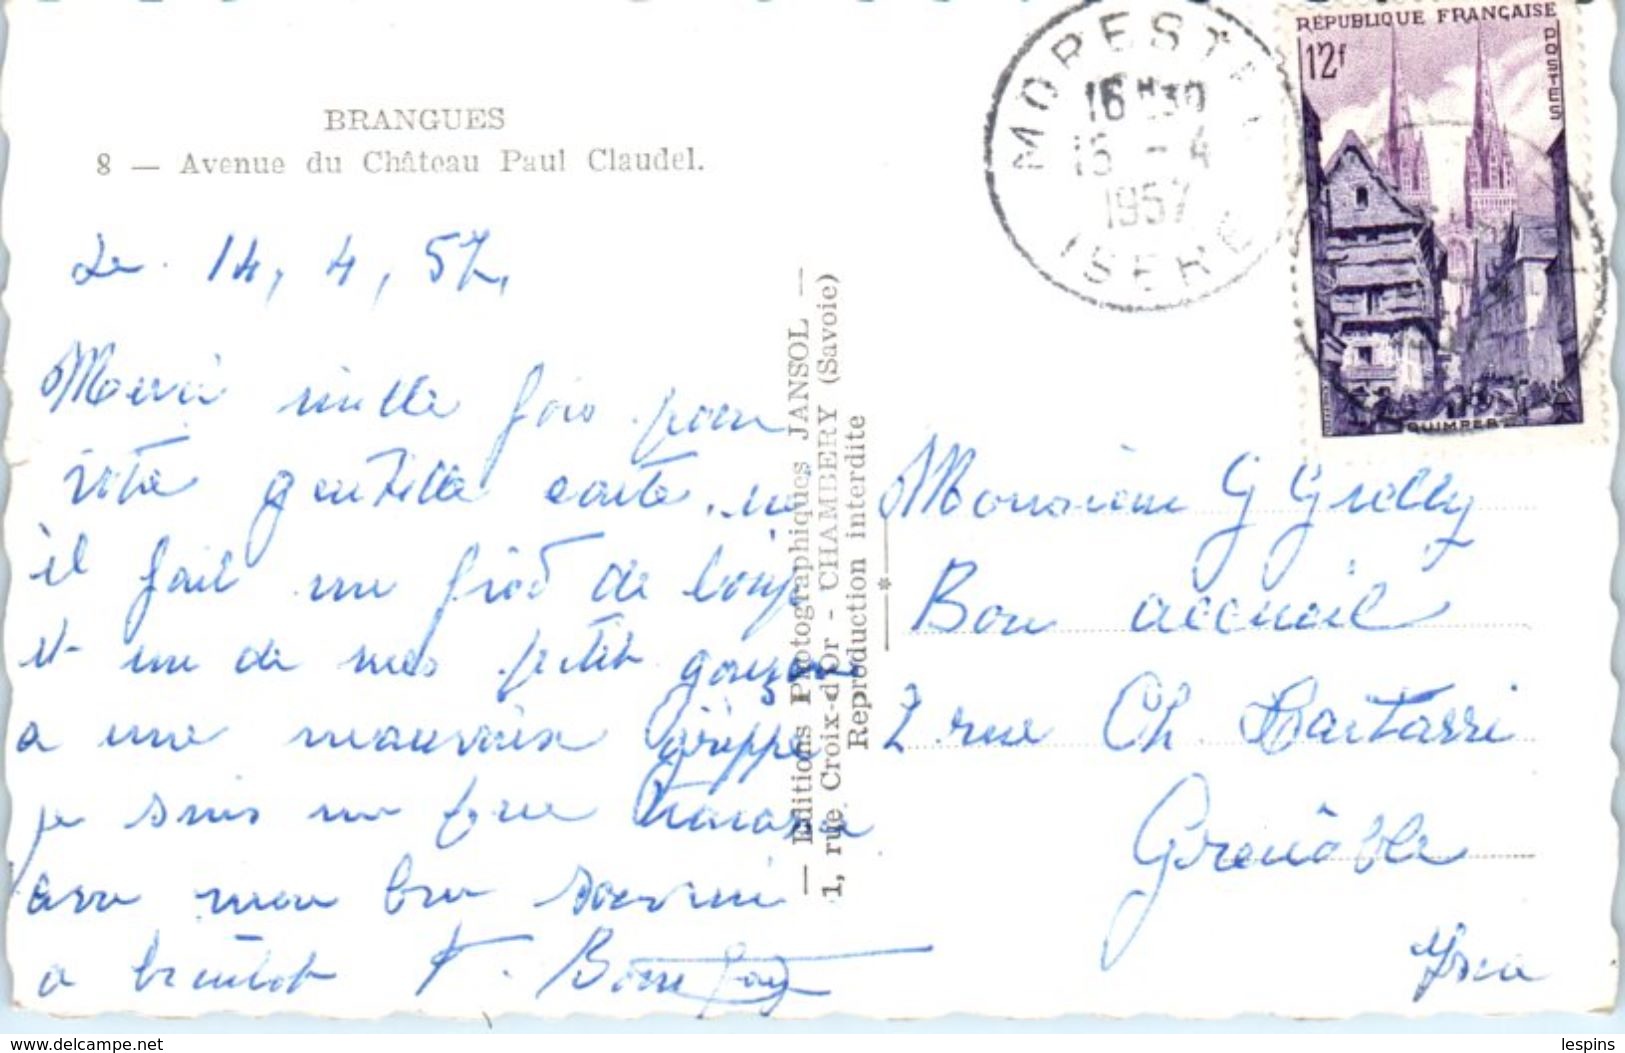 BRANGUES
8 — Avenue du Château Paul Claudel.
Le 14, 4, 57,
Merci mille fois pour
votre gentille carte,
il fait un froid de loup
et un de mes petit garçon
a une mauvaise grippe
je suis
mon bon souvenir
a bientot
— Editions Photographiques JANSOL —
1, rue Croix-d'Or - CHAMBERY (Savoie)
Reproduction interdite
MORESTEL
16 H 30
15 - 4
1957
ISERE
RÉPUBLIQUE FRANÇAISE
12f
POSTES
QUIMPER
Monsieur G Grelly
Bon accueil
2 rue Ch
Grenôble
Isère
delcampe.net
lespins